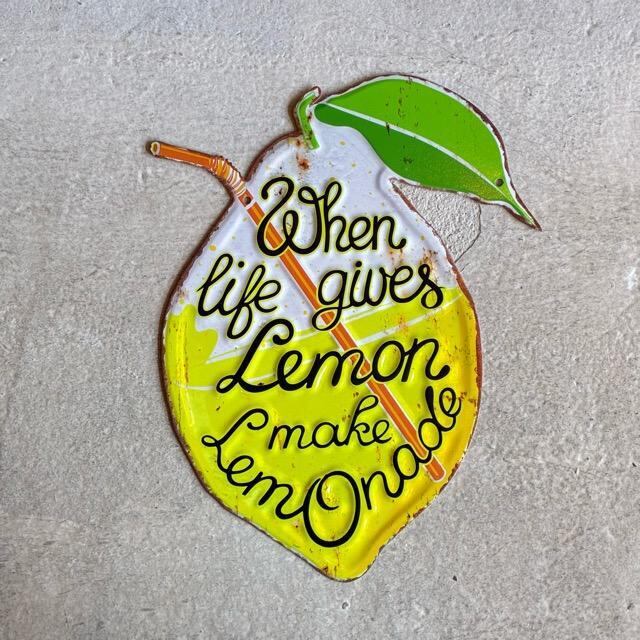 When
life gives
Lemon
make
LemOnade